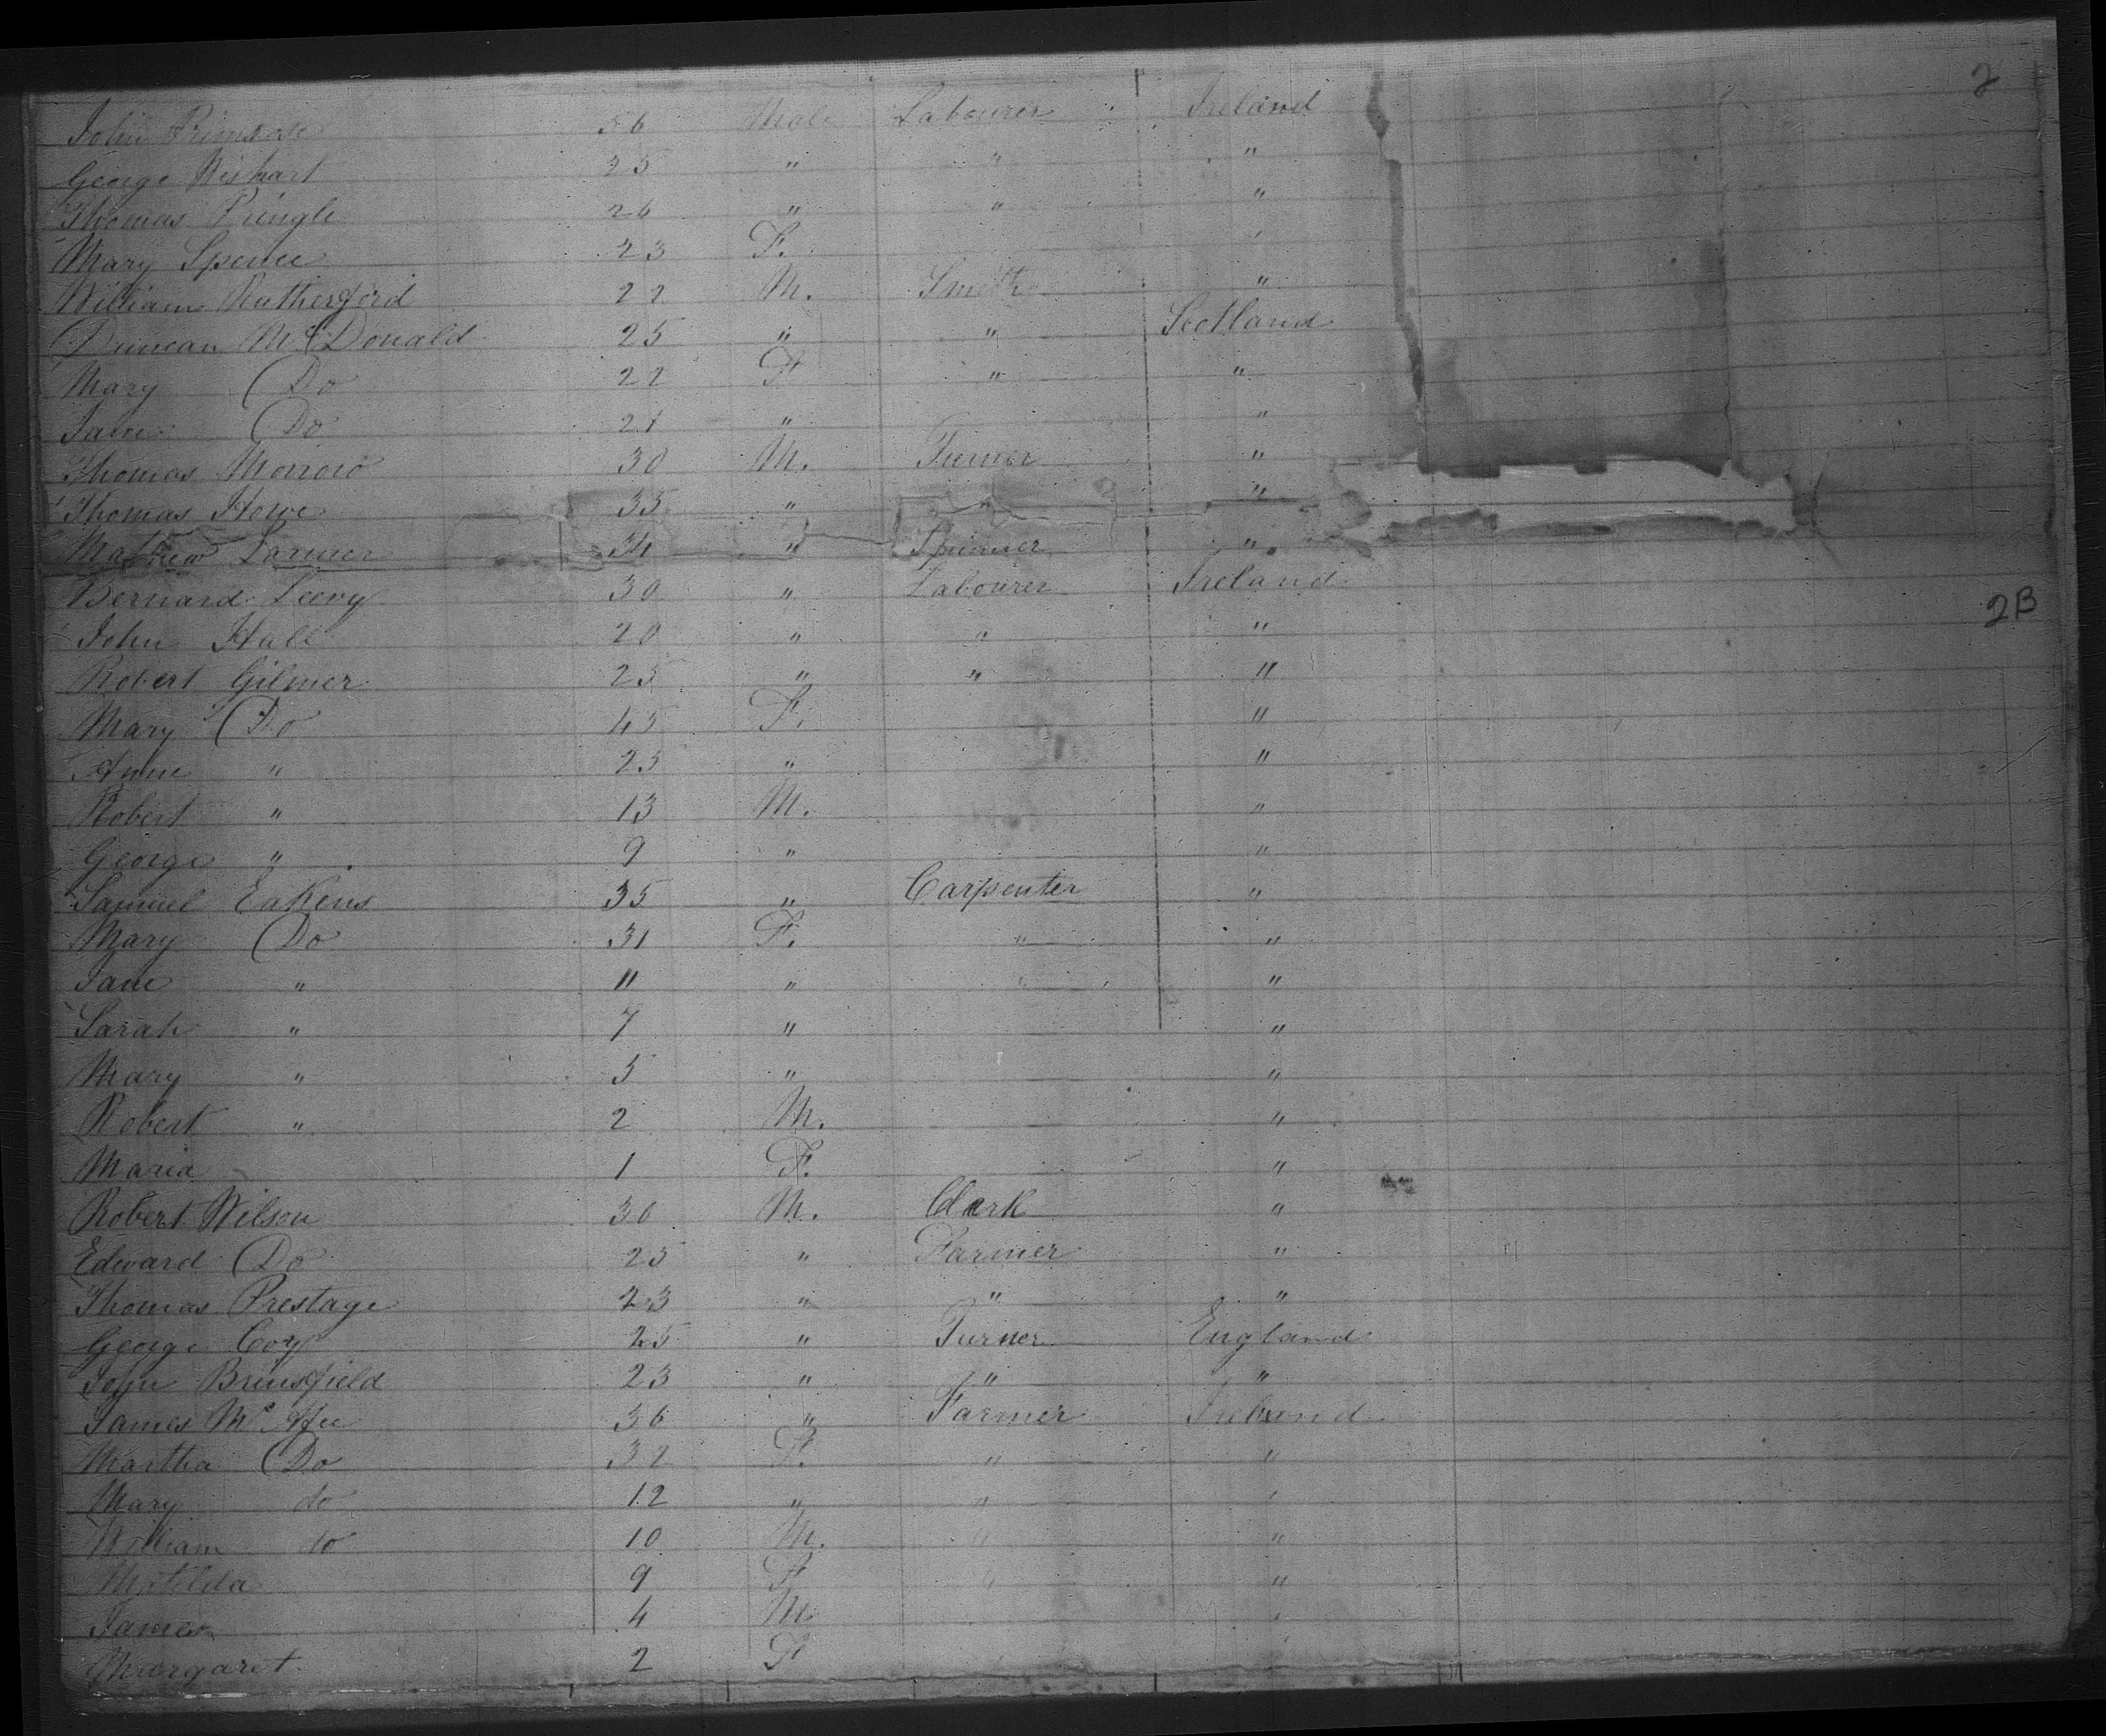 2
John Primrose 56 Male Labourer Ireland
George Wishart 25 " " "
Thomas Pringle 26 " " "
Mary Spence 23 F. "
William Rutherford 22 M. Smith "
Duncan McDonald 25 " " Scotland
Mary Do 22 F " "
Jane Do 21 " "
Thomas Morrow 30 M. Turner "
Thomas Howe 35 " " "
Mathew Larmer 34 " Spinner "
Bernard Leevy 30 " Labourer Ireland
2B
John Hall 20 " " "
Robert Gilmer 25 " " "
Mary Do 45 F. "
Anne " 25 " "
Robert " 13 M. "
George " 9 " "
Samuel Eakens 35 " Carpenter "
Mary Do 31 F. " "
Jane " 11 " " "
Sarah " 7 " "
Mary " 5 " "
Robert " 2 M. "
Maria 1 F. "
Robert Wilson 30 M. Clark "
Edward Do 25 " Farmer "
Thomas Prestage 23 " " "
George Coy 25 " Turner England
John Brinsfield 23 " " "
James Mc Hee 36 " Farmer Ireland
Martha Do 32 F. " "
Mary do 12 " " "
William do 10 M. " "
Matilda 9 F " "
James 4 M "
Margaret 2 F "